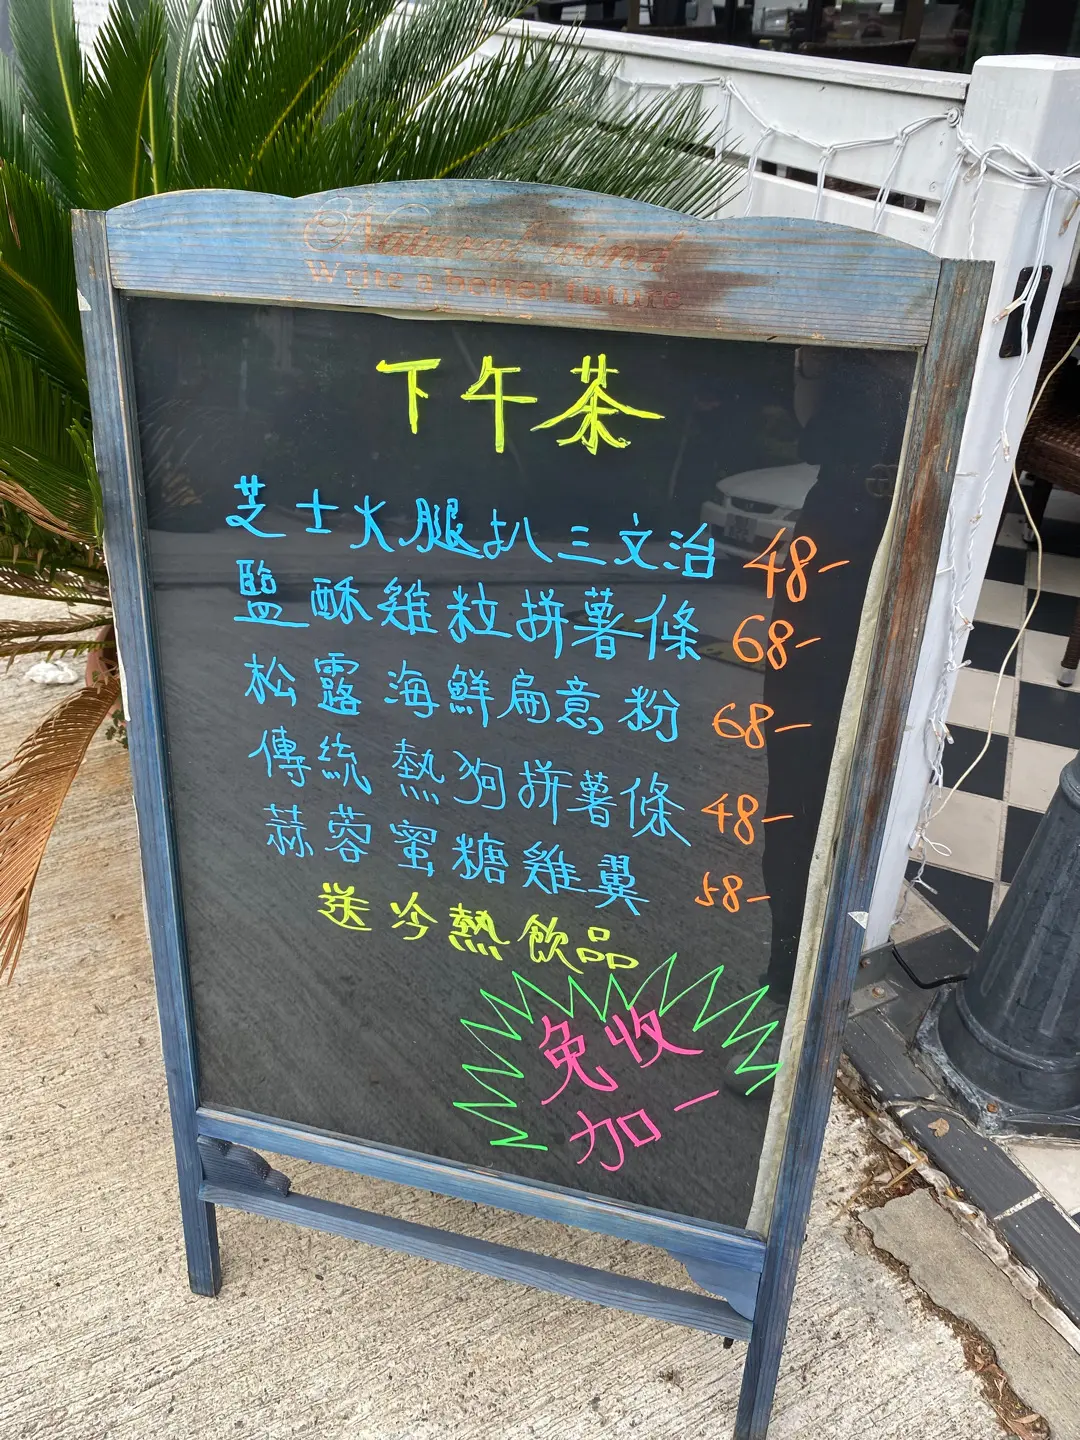 Natural wind
Write a better future
下午茶
芝士火腿扒三文治 48-
鹽酥雞粒拼薯條 68-
松露海鮮扁意粉 68-
傳統熱狗拼薯條 48-
蒜蓉蜜糖雞翼 58-
送冷熱飲品
免收
加一